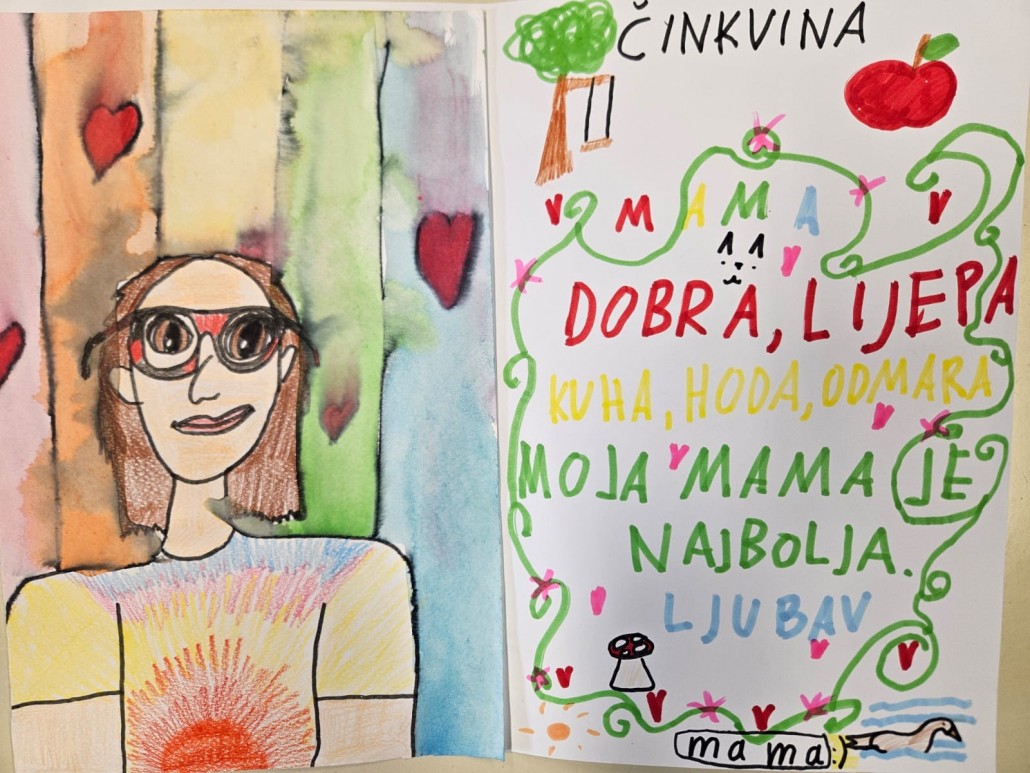 ČINKVINA
MAMA
DOBRA, LIJEPA
KUHA, HODA, ODMARA
MOJA MAMA JE
NAJBOLJA.
LJUBAV
mama:)